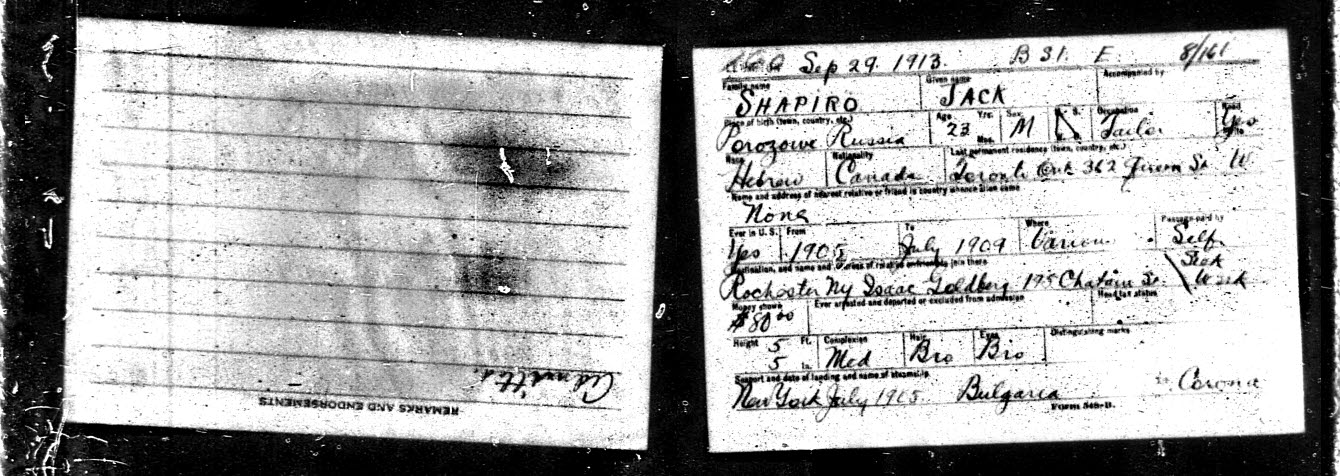 Admitted.
REMARKS AND ENDORSEMENTS
Sep 29 1913. B 31. E. 8/161
Family name Given name Accompanied by
SHAPIRO JACK
Place of birth (town, country, etc.) Age Yrs. Mos. Sex Occupation Read Write
Porozowe Russia 23 M Tailor Yes
Race Nationality Last permanent residence (town, country, etc.)
Hebrew Canada Toronto Ont 362 Queen St. W
Name and address of nearest relative or friend in country whence alien came
None
Ever in U. S. From To Where Passage paid by
Yes 1905 July 1909 Various Self
Destination, and name and address of relative or friend to join there
Seek
Rochester Ny Isaac Goldberg 195 Chatam St. Work
Money shown Ever arrested and deported or excluded from admission Head tax status
$80 00
Height 5 Ft. Complexion Hair Eyes Distinguishing marks
5 In. Med Bro Bro
Seaport and date of landing and name of steamship
New York July 1905 Bulgaria Corona
Form 548-B.